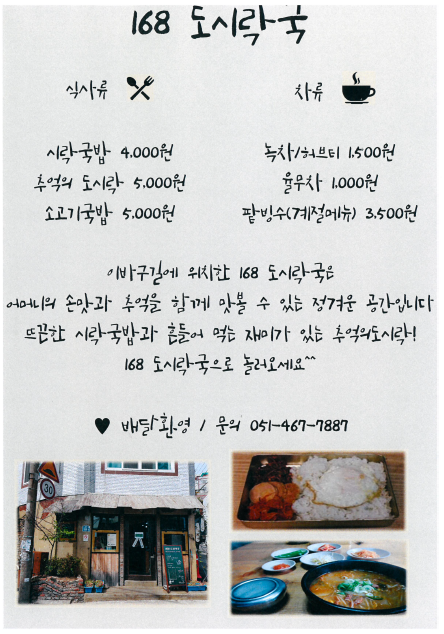 168 도시락국
식사류
차류
시락국밥 4.000원
녹차/허브티 1.500원
추억의 도시락 5.000원
율무차 1.000원
소고기국밥 5.000원
팥빙수(계절메뉴) 3.500원
이바구길에 위치한 168 도시락국은
어머니의 손맛과 추억을 함께 맛볼 수 있는 정겨운 공간입니다
뜨끈한 시락국밥과 흔들어 먹는 재미가 있는 추억의도시락!
168 도시락국으로 놀러오세요^^
♥ 배달환영 / 문의 051-467-7887
30